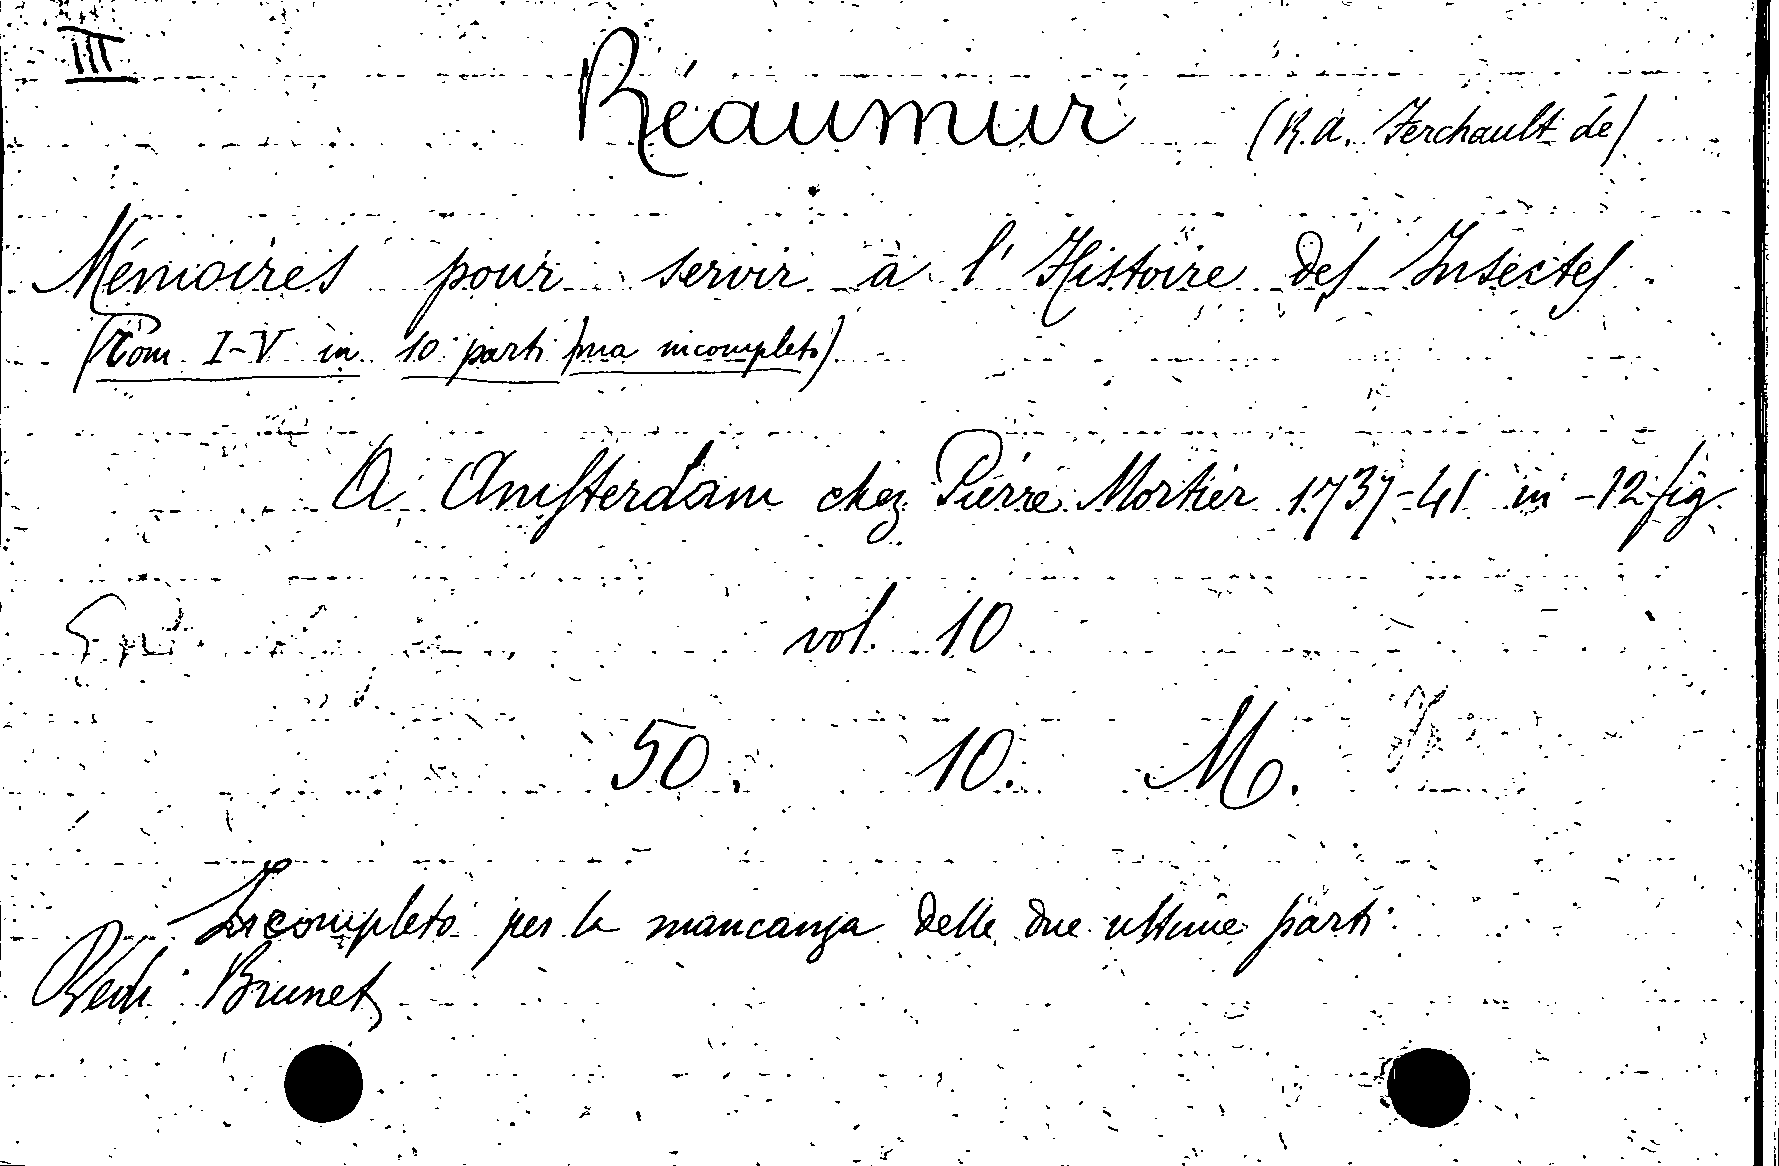 III
Réaumur (R. A. Ferchault de)
Mémoires pour servir à l'Histoire des Insectes.
(Tom. I-V in 10 parti ma incompleto)
A Amsterdam chez Pierre Mortier 1737-41 in-12 fig.
vol. 10
50. 10. M.
Incompleto per la mancanza delle due ultime parti
Vedi Brunet